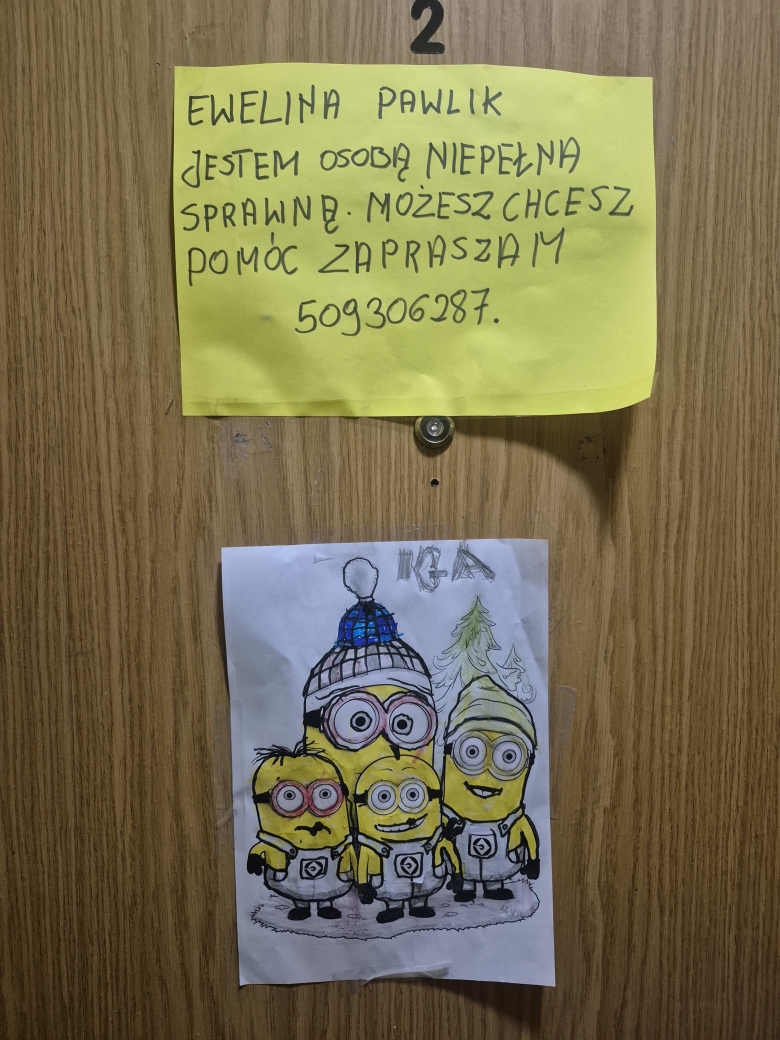 2
EWELINA PAWLIK
JESTEM OSOBĄ NIEPEŁNĄ
SPRAWNĄ. MOŻESZ CHCESZ
POMÓC ZAPRASZAM
509306287.
IGA